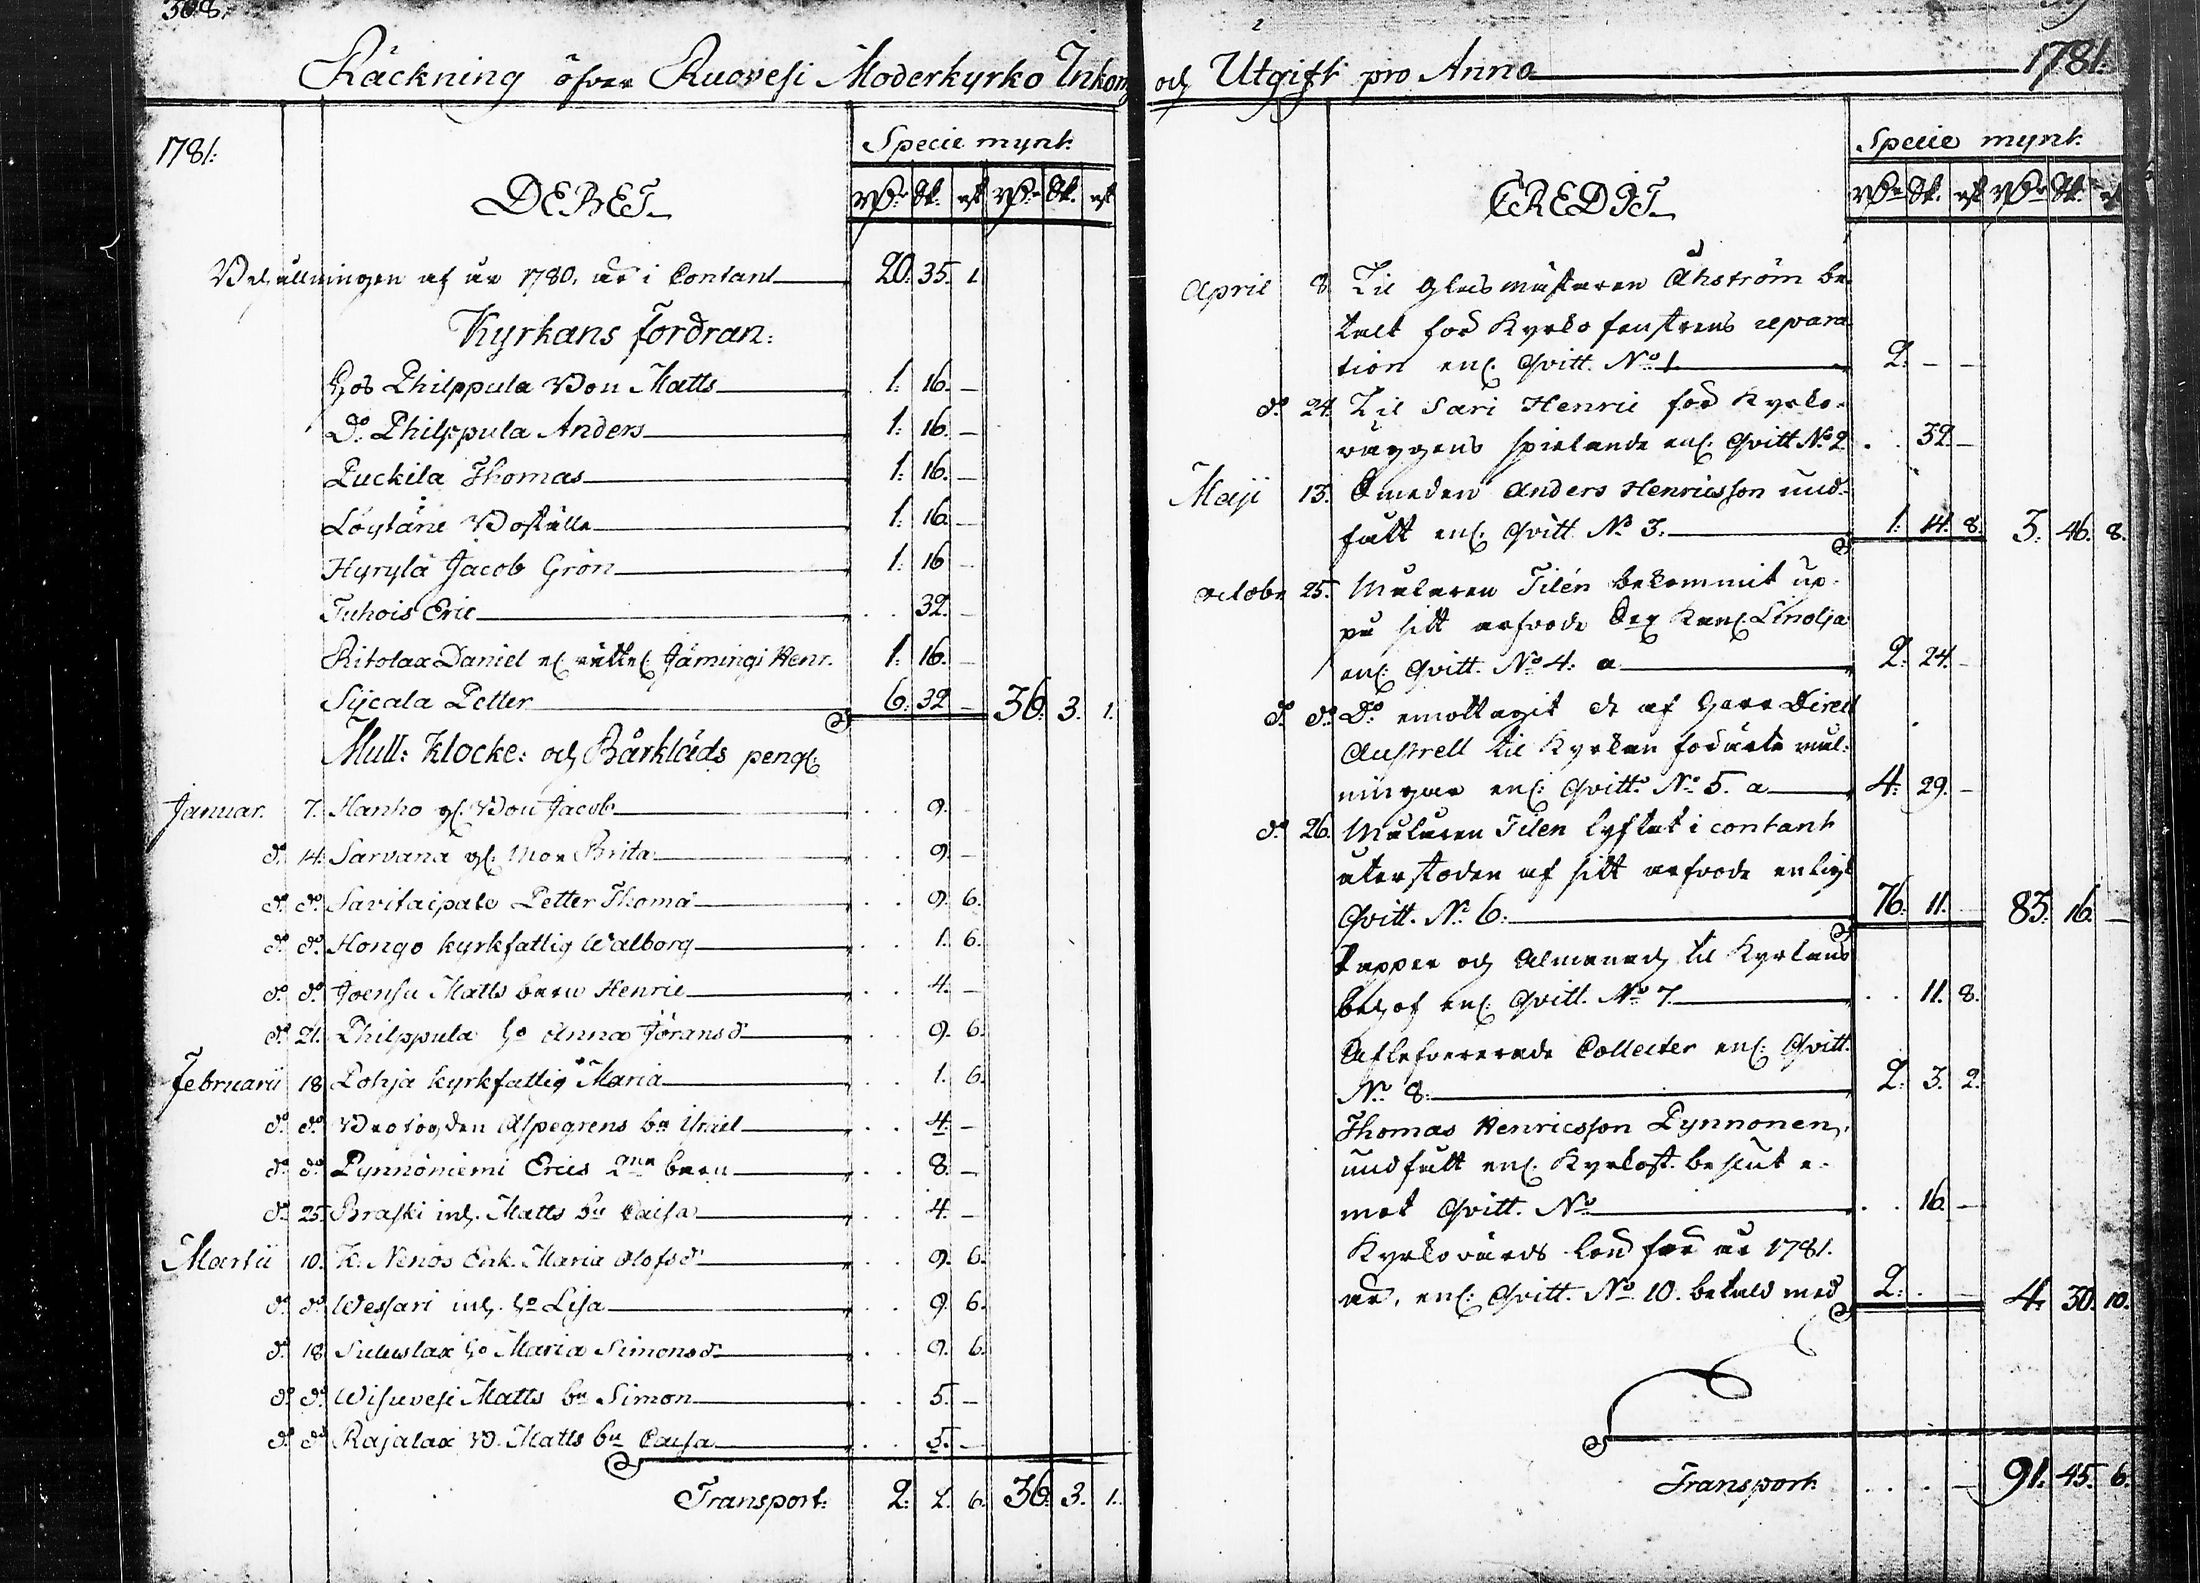 308.
Räckning öfver Ruovesi Moderkyrko Inkomst
1781.
Specie mynt.
DEBET.
Rd. Sk. rst Rd. Sk. rst
Behållningen af år 1780, är i Contant 20. 35. 1.
Kyrkans fordran:
Hos Philppula Bon Matts 1. 16. —
Do. Philppula Anders 1. 16. —
Puckila Thomas 1. 16. —
Löytäne Boställe 1. 16. —
Hyrylä Jacob Grön 1. 16 —
Tuhois Eric . . 32. —
Ritolax Daniel el. rättel. Jämingi Henr. 1. 16. —
Sijcala Petter 6. 32 — 36. 3. 1.
Mull: Klocke: och Bårkläds peng:
Januar. 7. Hanho gl. Bon Jacob . . 9. —
do. 14. Sarvana gl. Mor Brita . . 9. —
do. do. Savitaipale Petter Thomæ . . 9. 6.
do. do. Hongo kyrkfattig Walborg . . 1. 6.
do. do. Joensu Matts barn Henric . . 4. —
do. 21. Philppula ho Anna Jöransdr . . 9. 6.
Februarii 18 Pohja kyrkfattig Maria . . 1. 6.
do. do. Brofogden Aspegrens bn Israel . . 4. —
do. do. Pynnöniemi Erics 2ne barn . . 8. —
do. 25. Braski inh. Matts bn Caisa . . 4. —
Martii 10. K. Nenos Enk. Maria Olofsdr . . 9. 6.
do. do. Wessari inh. ho Lisa . . 9 6.
do. 18 Suluslax ho Maria Simonsdr . . 9. 6.
do. do. Wisuvesi Matts bn Simon . . 5. —
do. do. Rajalax B. Matts bn Caisa . . 5. —
Transport. 2. 2. 6. 36. 3. 1.
och Utgift pro Anno 1781.
Specie mynt.
CREDIT.
Rd. Sk. rst Rd. Sk. rst
April 8. Til Glasmästaren Åhström be-
talt för Kyrko fenstrens repara-
tion enl. Qvitt. No. 1. 2. — —
do. 24. Til Sari Henric för Kyrko-
räggens spielande enl. Qvitt No. 2 . 32. —
Maji 13. Smeden Anders Henricsson und-
fått enl. Qvitt No. 3. 1. 14. 8. 3. 46. 8.
octobr. 25. Målaren Tilén bekommit up-
på sitt arfvode Sex Kan. Linolja
enl. Qvitt. No. 4. a 2. 24. —
do. do. Do. emottagit de af Herr Direct
Austrell til Kyrkan förärte mål-
ningar enl. Qvitto No. 5. a 4. 29. —
do. 26. Målaren Tilen lyftat i contant
återstoden af sitt arfvode enligt
Qvitt. No. 6. 76. 11. — 83. 16. —
Papper och Almanach til Kyrkans
behof enl. Qvitt. No. 7. . . 11. 8.
Aflefvererade Collecter enl. Qvitt.
No. 8. 2. 3. 2.
Thomas Henricsson Pynnonen,
undfått enl. Kyrkost. beslut e-
mot Qvitt. No . . 16. —
Kyrkovärds lön för år 1781.
är, enl. Qvitt. No 10. betald med 2. . — 4. 30. 10.
Transport . . . — 91. 45. 6.